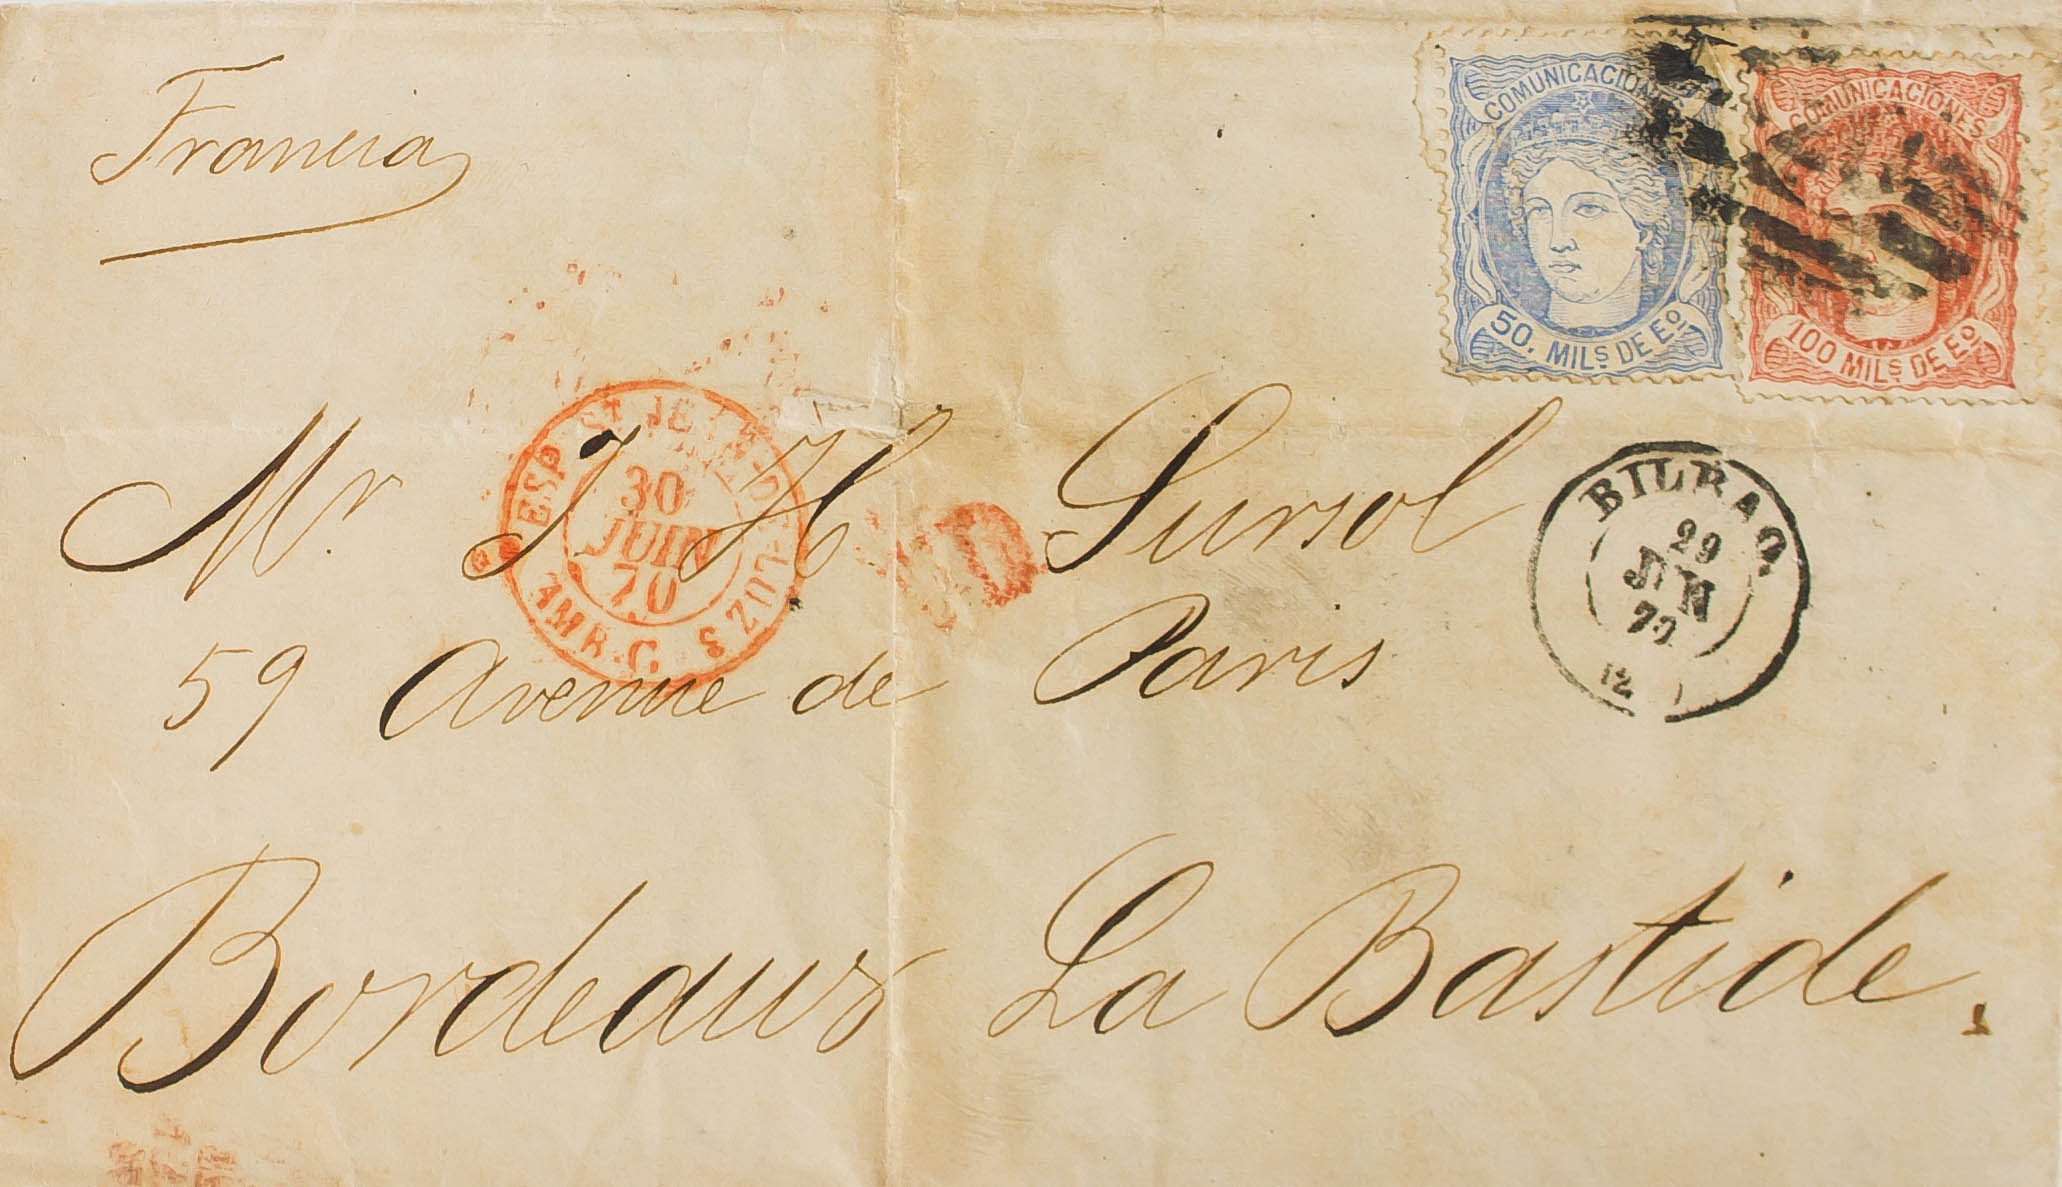 Francia
COMUNICACIONES
50. MILS DE Eo
COMUNICACIONES
100 MILS DE Eo
ESP. ST JEAN-DE-LUZ
30
JUIN
70
AMB. C.
BILBAO.
29
JUN
70
Mr. J H Sursol
59 Avenue de Paris
Bordeaux La Bastide.